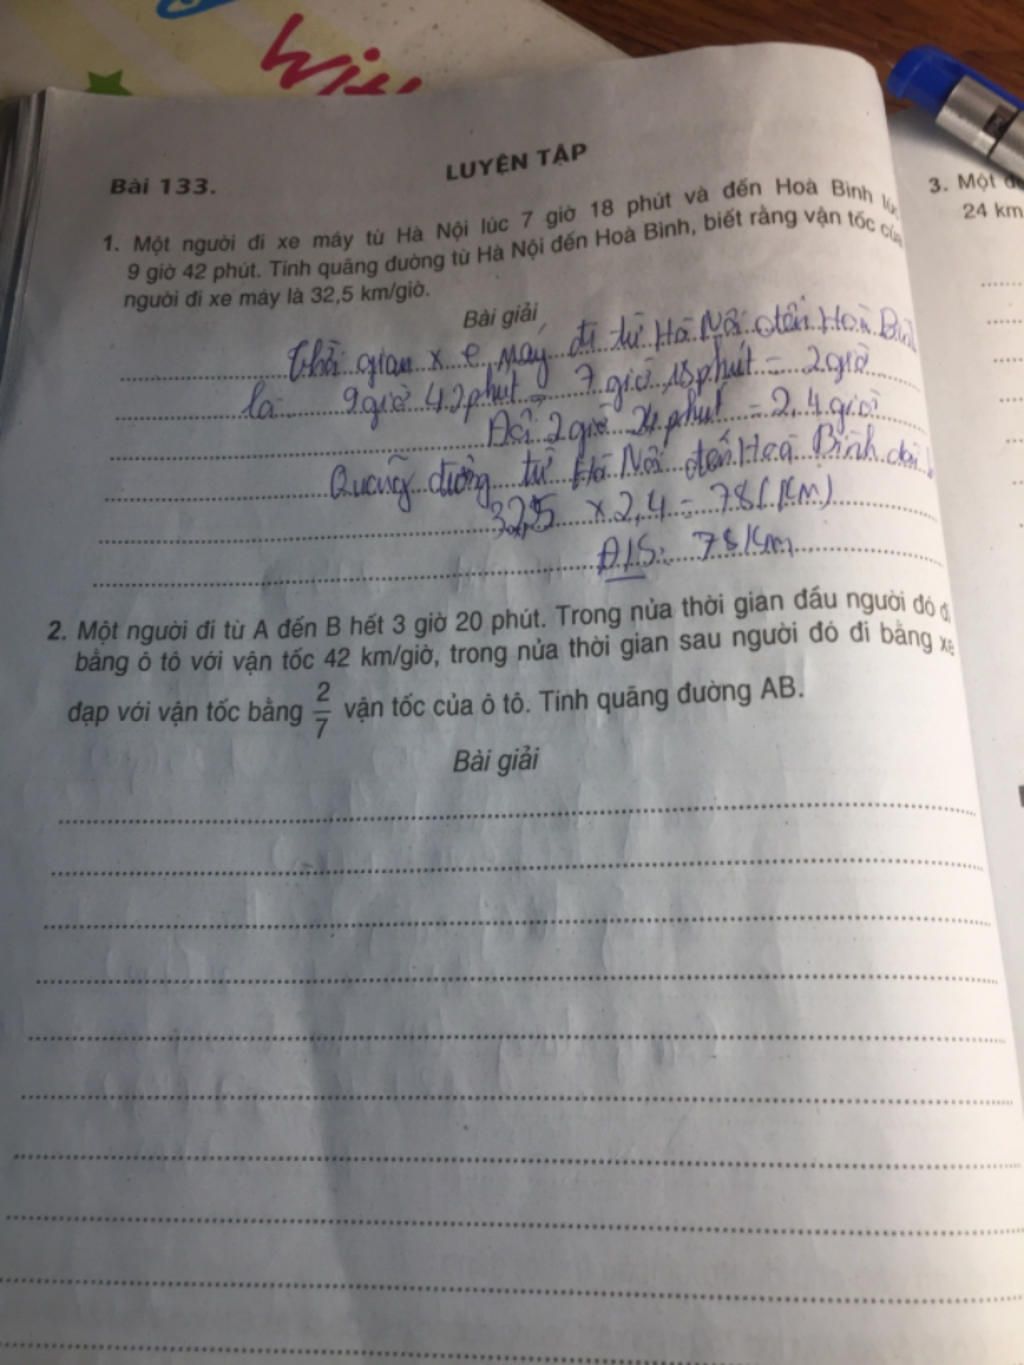 with
LUYỆN TẬP
Bài 133.
1. Một người đi xe máy từ Hà Nội lúc 7 giờ 18 phút và đến Hoà Bình lúc
9 giờ 42 phút. Tính quãng đường từ Hà Nội đến Hoà Bình, biết rằng vận tốc của
người đi xe máy là 32,5 km/giờ.
Bài giải
thời gian xe máy đi từ Hà Nội đến Hoà Bình
là 9 giờ 42 phút - 7 giờ 18 phút = 2 giờ
2 giờ 24 phút = 2,4 giờ
Quãng đường từ Hà Nội đến Hoà Bình dài
32,5 x 2,4 = 78 (Km)
Đ/S: 78 Km
2. Một người đi từ A đến B hết 3 giờ 20 phút. Trong nửa thời gian đầu người đó đi
bằng ô tô với vận tốc 42 km/giờ, trong nửa thời gian sau người đó đi bằng xe
đạp với vận tốc bằng 2/7 vận tốc của ô tô. Tính quãng đường AB.
Bài giải
3. Một
24 km